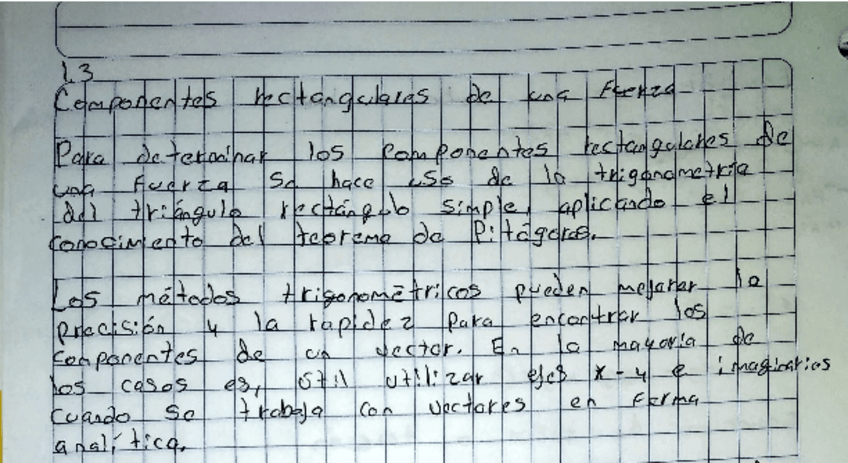 1.3
Componentes rectangulares de una fuerza
Para determinar los componentes rectangulares de
una fuerza se hace uso de la trigonometría
del triángulo rectángulo simple, aplicando el
conocimiento del teorema de Pitágoras.
Los métodos trigonométricos pueden mejorar la
precisión y la rapidez para encontrar los
componentes de un vector. En la mayoría de
los casos es, útil utilizar ejes x-y e imaginarios
cuando se trabaja con vectores en forma
analítica.